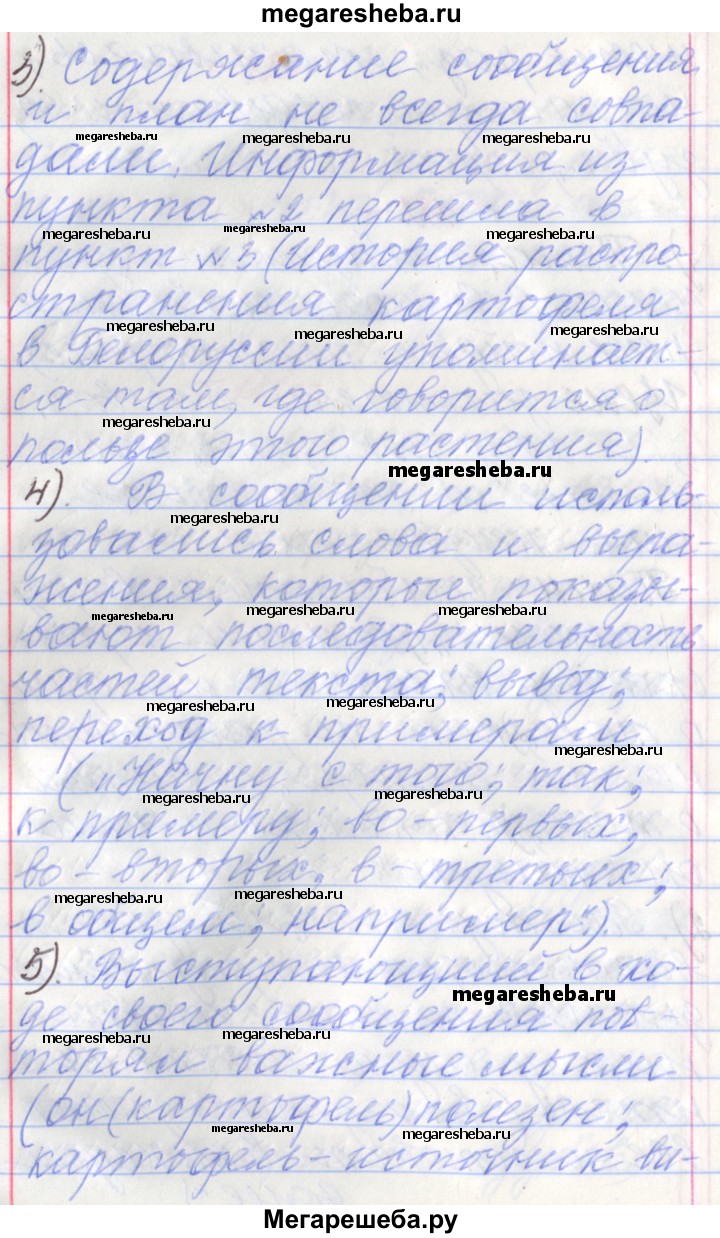 megaresheba.ru
3). Содержание сообщения
и план не всегда совпа-
megaresheba.ru megaresheba.ru megaresheba.ru
дали. Информация из
пункта №2 перешла в
megaresheba.ru megaresheba.ru megaresheba.ru
пункт №3 (История распро-
странения картофеля
megaresheba.ru megaresheba.ru megaresheba.ru
в Белоруссии упоминает-
ся там, где говорится о
megaresheba.ru
пользе этого растения).
megaresheba.ru
4). В сообщении исполь-
megaresheba.ru
зовались слова и выра-
жения, которые показы-
megaresheba.ru megaresheba.ru megaresheba.ru
вают последовательность
частей текста; вывод;
megaresheba.ru megaresheba.ru
переход к примерам.
megaresheba.ru
(„Начну с того; так;
megaresheba.ru megaresheba.ru
к примеру; во-первых,
во-вторых, в-третьих;
megaresheba.ru megaresheba.ru
в общем, например").
5). Выступающий в хо-
megaresheba.ru
де своего сообщения пов-
megaresheba.ru megaresheba.ru
торял важные мысли
(он (картофель) полезен;
megaresheba.ru megaresheba.ru
картофель - источник ви-
Мегарешеба.ру